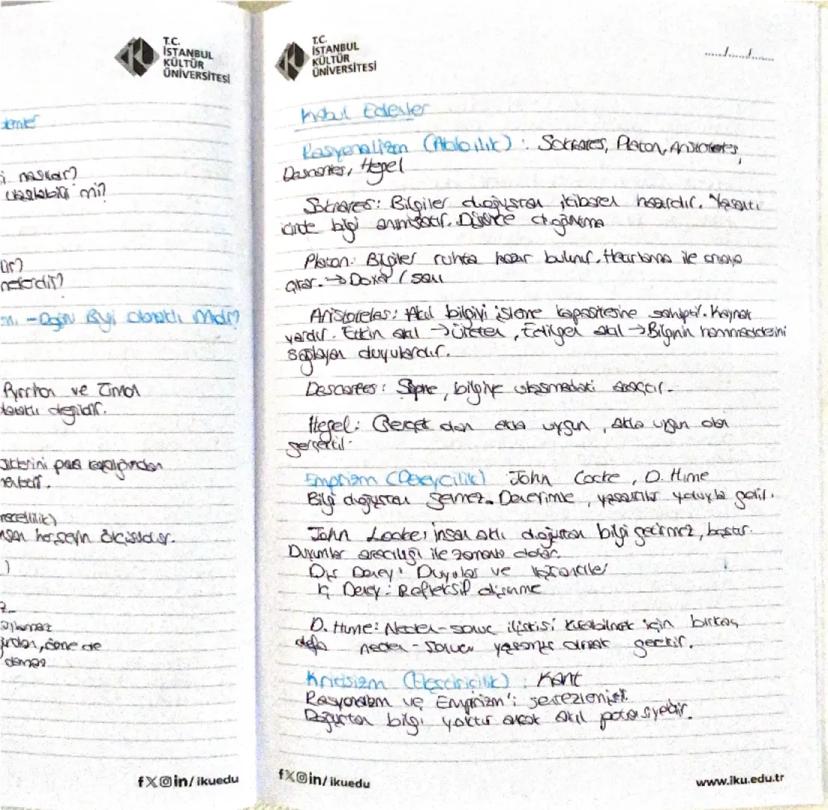 T.C.
İSTANBUL
KÜLTÜR
ÜNİVERSİTESİ
mi?
nelerdir?
- Doğru Bilgi Olanaklı Mıdır?
Pyrrhon ve Timon
değildir.
herşeyin ölçüsüdür.
)
de
f X in/ ikuedu
T.C.
İSTANBUL
KÜLTÜR
ÜNİVERSİTESİ
...../...../.......
Kabul Edenler
Rasyonalizm (Akılcılık) : Sokrates, Platon, Aristoteles,
Descartes, Hegel
Sokrates: Bilgiler doğuştan itibaren hazırdır. Yaşantı
içinde bilgi anımsatır. Düşünce doğurtma
Platon: Bilgiler ruhta hazır bulunur. Hatırlama ile ortaya
çıkar. → Doxa / sanı
Aristoteles: Akıl bilgiyi işleme kapasitesine sahiptir. Kaynak
vardır. Etkin akıl → Üreten, Edilgen akıl → Bilginin hammaddesini
sağlayan duyulardır.
Descartes: Şüphe, bilgiye ulaşmadaki araçtır.
Hegel: Gerçek olan akla uygun, akla uygun olan
gerçektir.
Emprizm (Deneycilik) John Locke, D. Hume
Bilgi doğuştan gelmez. Deneyimle, yaşantılar yoluyla gelir.
John Locke: insan aklı doğuştan bilgi getirmez, boştur.
Duyumlar aracılığı ile zamanla dolar.
Dış Deney: Duyular ve
İç Deney: Refleksif düşünme
D. Hume: Neden-sonuç ilişkisi kurabilmek için birkaç
defa neden-sonucu yaşamış olmak gerekir.
Kritisizm (Eleştiricilik) : Kant
Rasyonalizm ve Empirizm'i sentezlemiştir.
Doğuştan bilgi yoktur ancak akıl potansiyeldir.
f X in/ ikuedu
www.iku.edu.tr